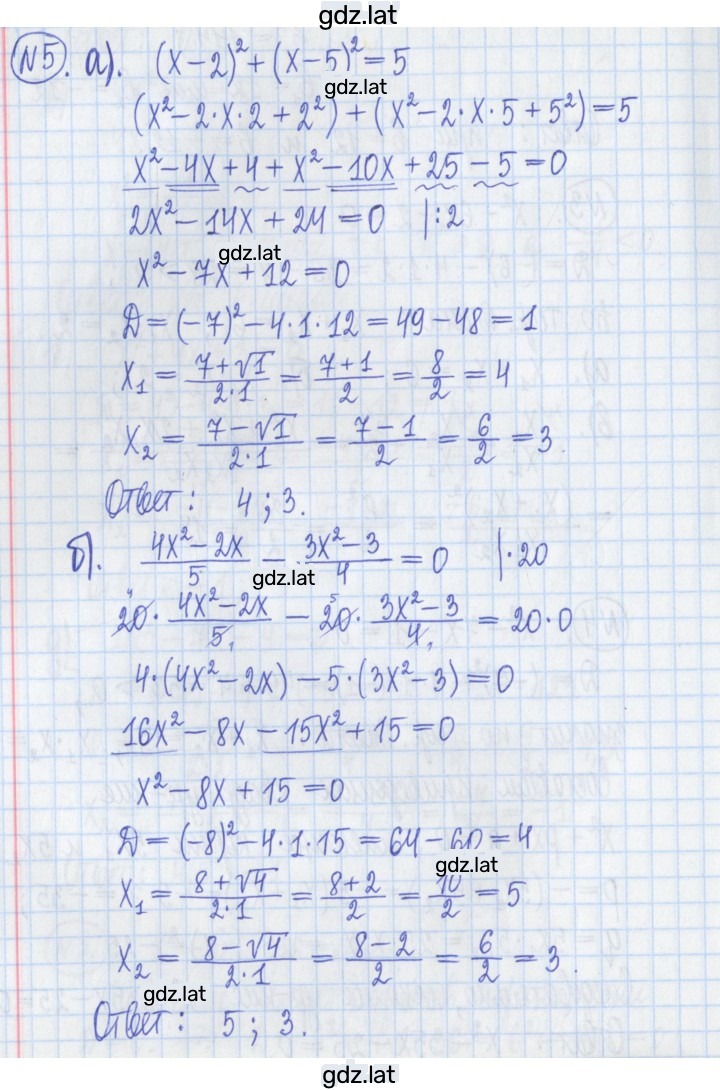 gdz.lat
№5. а). (x-2)²+(x-5)²=5
gdz.lat
(x²-2·x·2+2²)+(x²-2·x·5+5²)=5
x²-4x+4+x²-10x+25-5=0
2x²-14x+24=0 |:2
gdz.lat
x²-7x+12=0
Д=(-7)²-4·1·12=49-48=1
x₁=(7+√1)/(2·1)=(7+1)/2=8/2=4
x₂=(7-√1)/(2·1)=(7-1)/2=6/2=3.
Ответ: 4; 3.
б). (4x²-2x)/5-(3x²-3)/4=0 |·20
gdz.lat
⁴20·(4x²-2x)/5₁-⁵20·(3x²-3)/4₁=20·0
4·(4x²-2x)-5·(3x²-3)=0
16x²-8x-15x²+15=0
x²-8x+15=0
Д=(-8)²-4·1·15=64-60=4
gdz.lat
x₁=(8+√4)/(2·1)=(8+2)/2=10/2=5
x₂=(8-√4)/(2·1)=(8-2)/2=6/2=3.
gdz.lat
Ответ: 5; 3.
gdz.lat